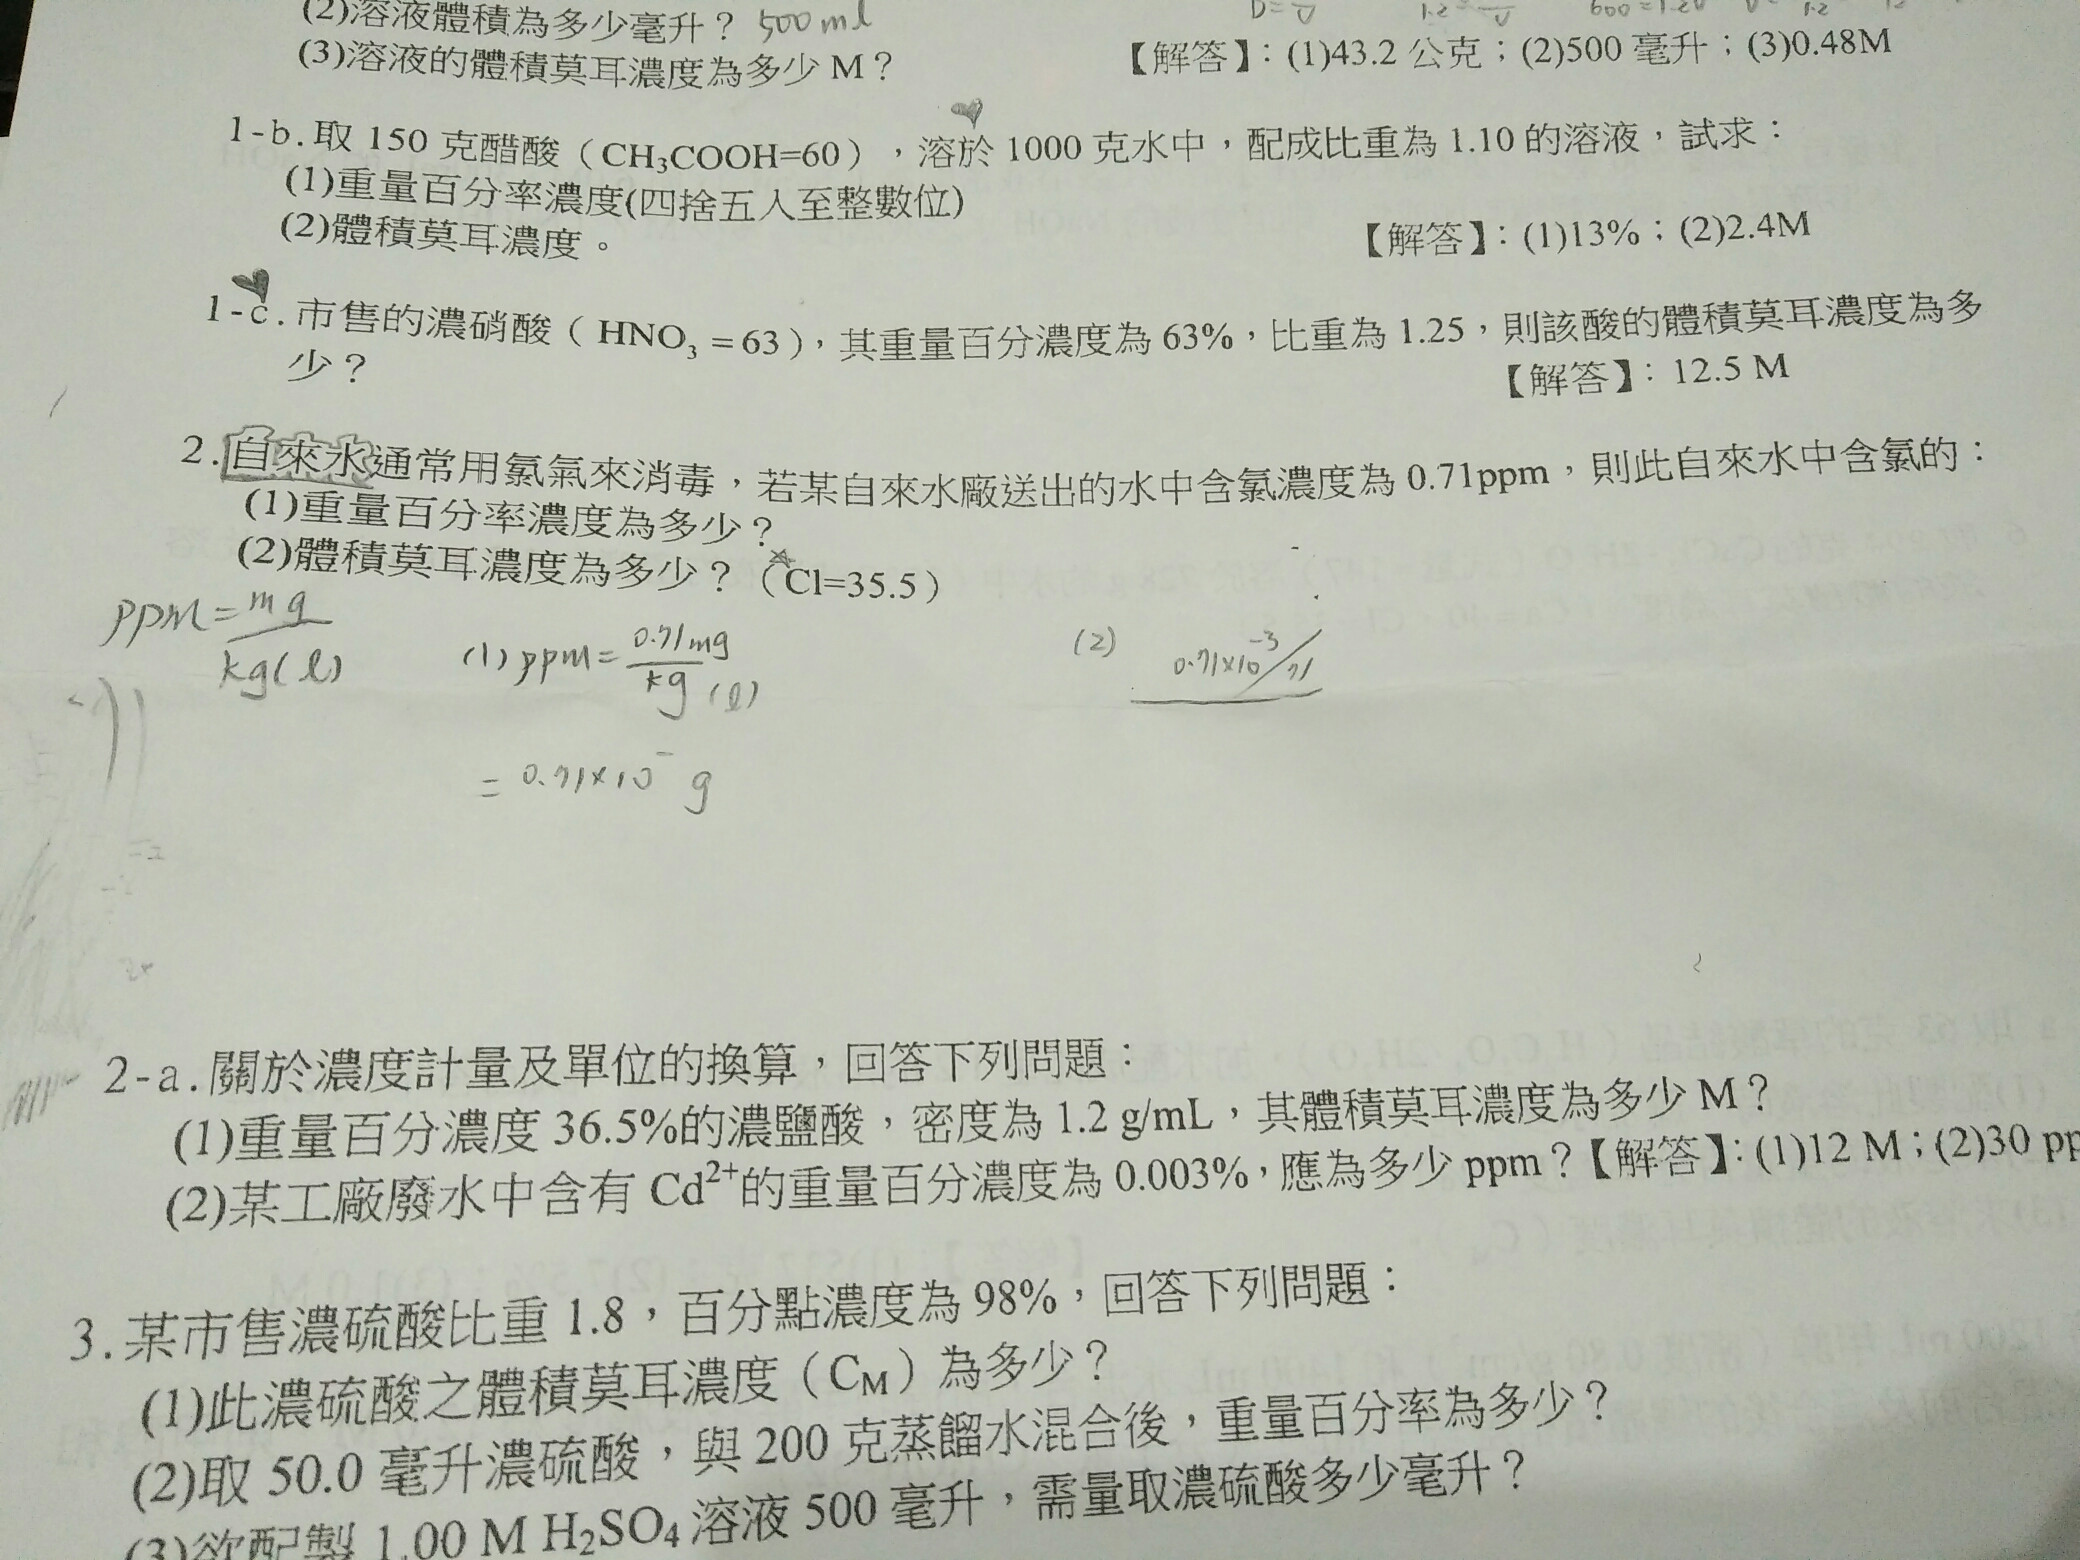 (2)溶液體積為多少毫升？ 500ml
(3)溶液的體積莫耳濃度為多少 M？
【解答】：(1)43.2 公克；(2)500 毫升；(3)0.48M
1-b.取 150 克醋酸（CH₃COOH=60），溶於 1000 克水中，配成比重為 1.10 的溶液，試求：
(1)重量百分率濃度(四捨五入至整數位)
(2)體積莫耳濃度。
【解答】：(1)13%；(2)2.4M
1-c.市售的濃硝酸（HNO₃ =63），其重量百分濃度為 63%，比重為 1.25，則該酸的體積莫耳濃度為多
少？
【解答】：12.5 M
2.自來水通常用氯氣來消毒，若某自來水廠送出的水中含氯濃度為 0.71ppm，則此自來水中含氯的：
(1)重量百分率濃度為多少？
(2)體積莫耳濃度為多少？（Cl=35.5）
ppm=mg/kg(l)
(1) ppm=0.71mg/kg(l)
(2) 0.71×10⁻³/71
=0.71×10⁻ g
2-a.關於濃度計量及單位的換算，回答下列問題：
(1)重量百分濃度 36.5%的濃鹽酸，密度為 1.2 g/mL，其體積莫耳濃度為多少 M？
(2)某工廠廢水中含有 Cd²⁺的重量百分濃度為 0.003%，應為多少 ppm？【解答】：(1)12 M；(2)30 pp
3.某市售濃硫酸比重 1.8，百分點濃度為 98%，回答下列問題：
(1)此濃硫酸之體積莫耳濃度（CM）為多少？
(2)取 50.0 毫升濃硫酸，與 200 克蒸餾水混合後，重量百分率為多少？
(3)欲配製 1.00 M H₂SO₄ 溶液 500 毫升，需量取濃硫酸多少毫升？